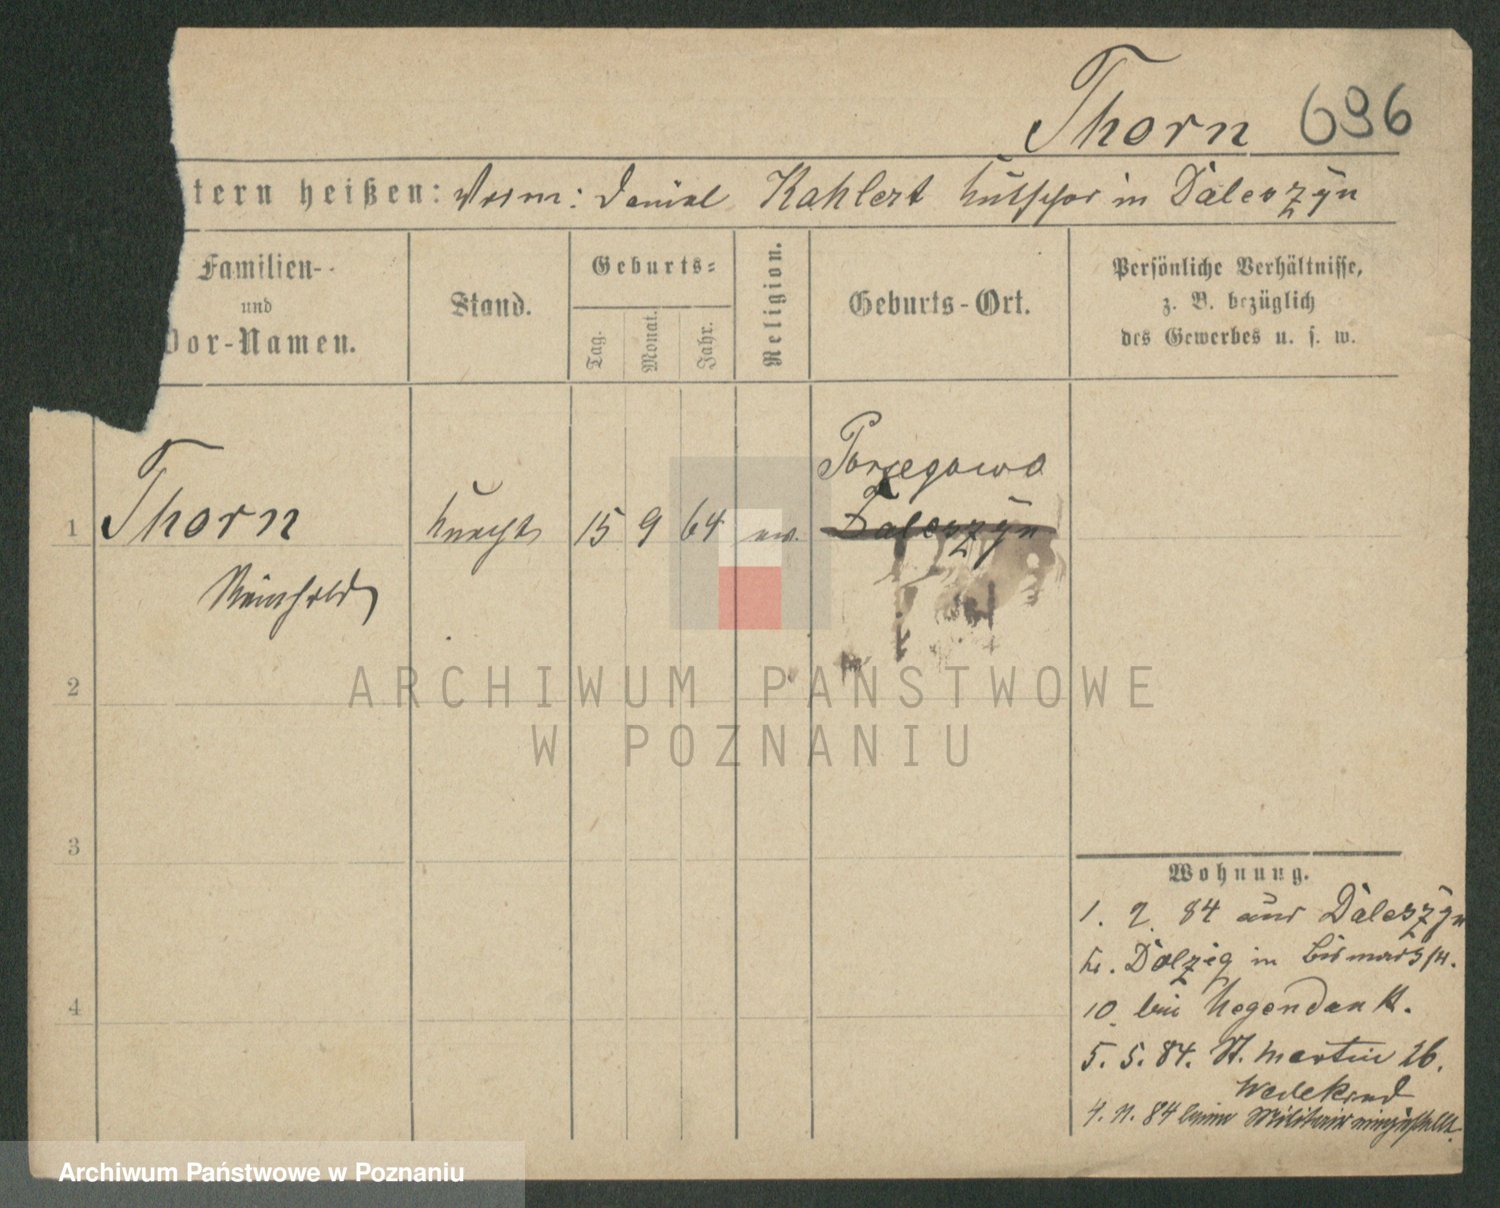 Thorn 696
tern heißen: Vorm: Daniel Kahlert Kutscher in Daleszyn
Familien-
und
Vor-Namen.
Stand.
Geburts-
Tag.
Monat.
Jahr.
Religion.
Geburts-Ort.
Persönliche Verhältnisse,
z. B. bezüglich
des Gewerbes u. s. w.
Porzegowo
1 Thorn Knecht 15 9 64 ev. Daleszyn
Reinhold
2
ARCHIWUM PAŃSTWOWE
W POZNANIU
3
Wohnung.
1. 2. 84 aus Daleszyn
Dolzig in
10 bei Hegendank.
5. 5. 84. St. Martin 26.
Wedekind
4. 11. 84 beim Militair eingestellt.
4
Archiwum Państwowe w Poznaniu